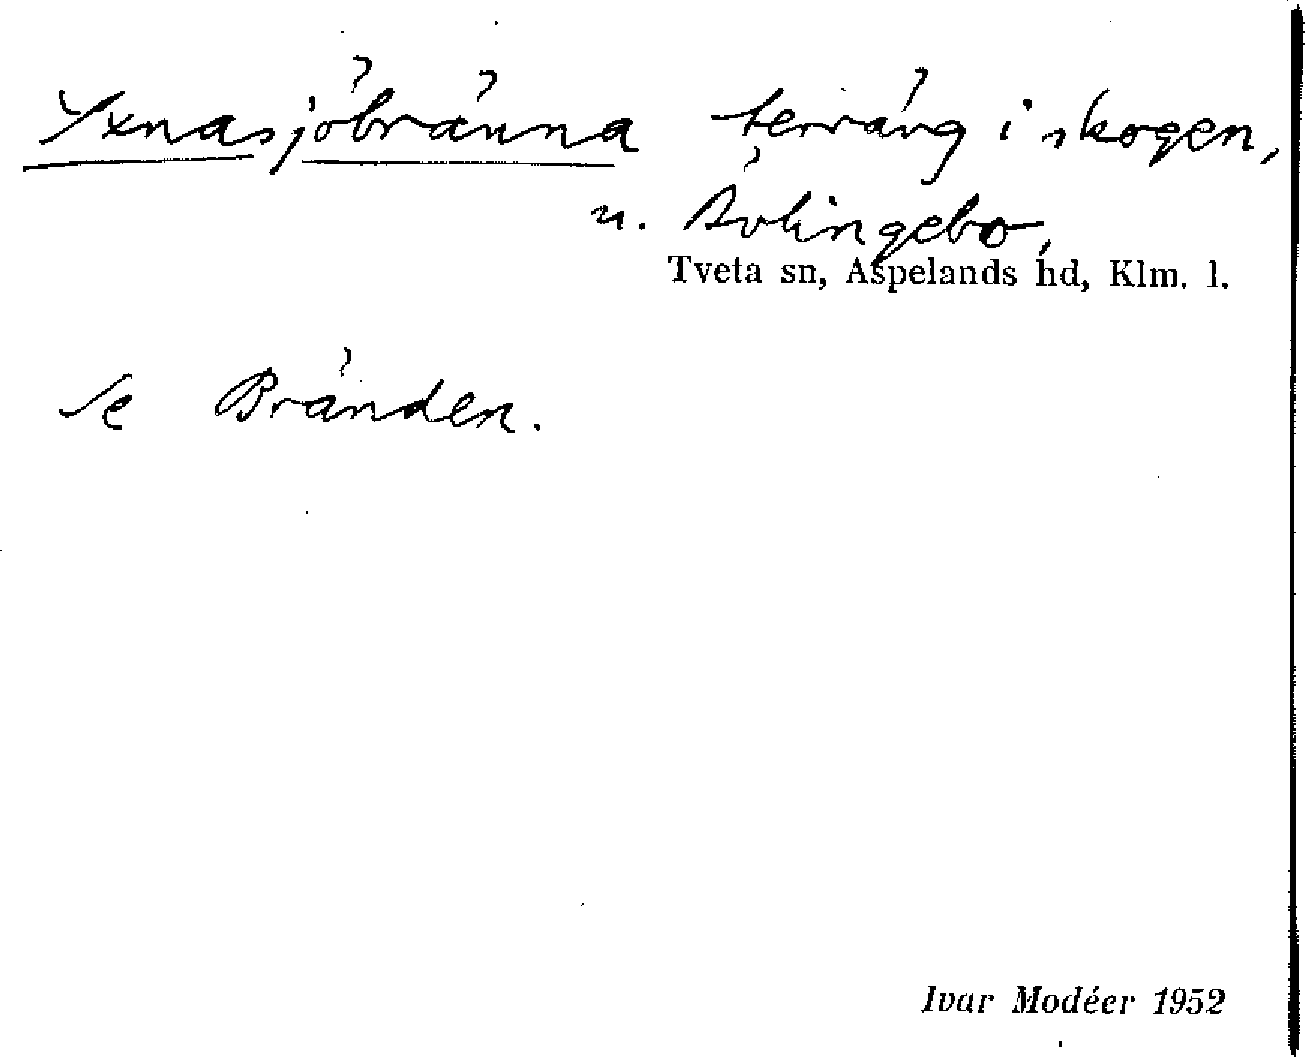 Yxnasjöbränna terräng i skogen,
u. Övlingebo,
Tveta sn, Aspelands hd, Klm. l.
Se Bränden.
Ivar Modéer 1952